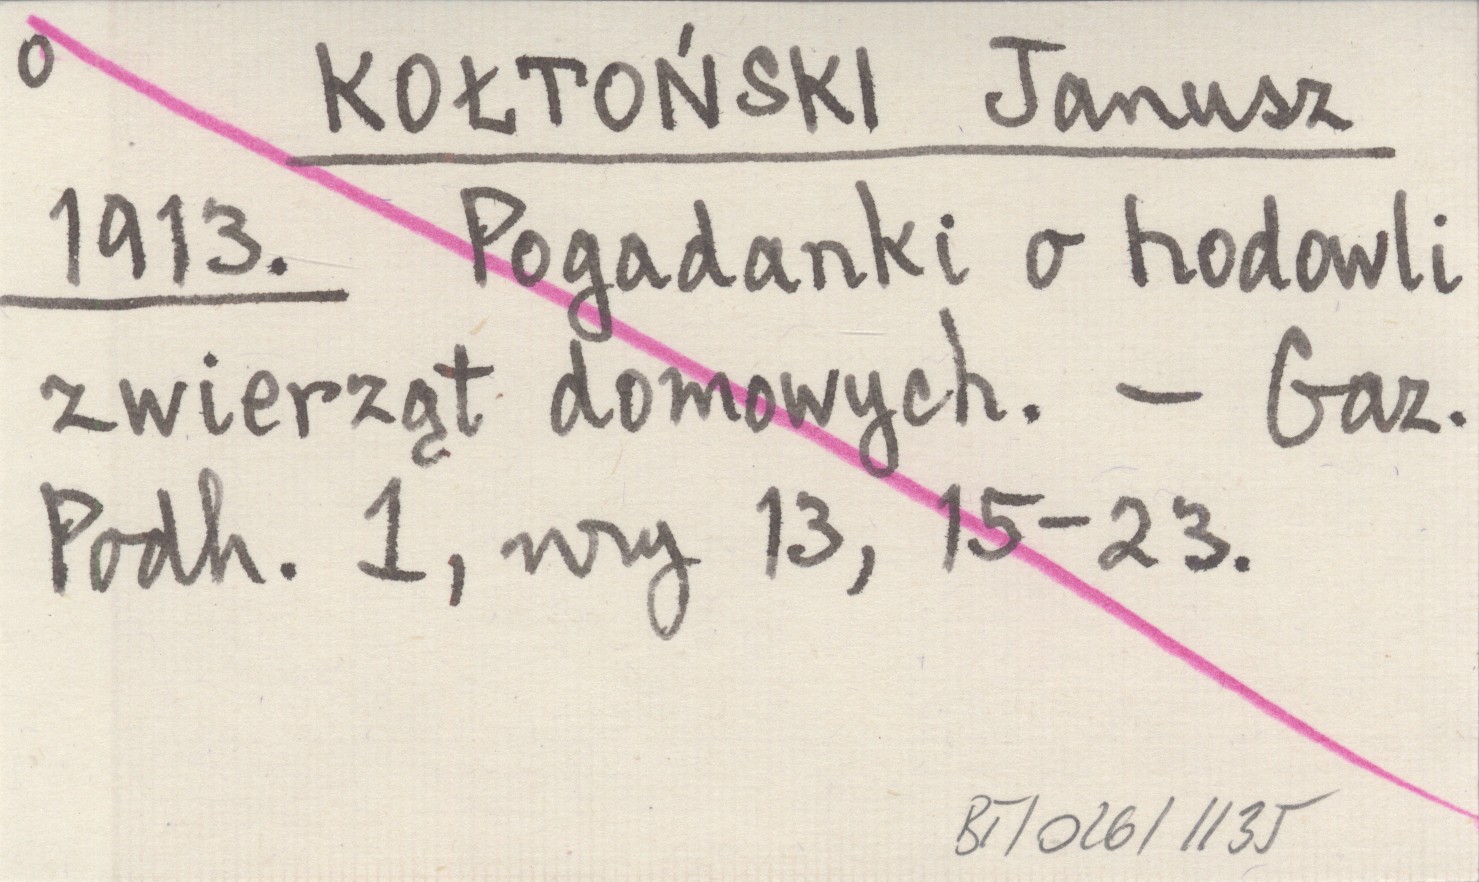 o
KOŁTOŃSKI Janusz
1913. Pogadanki o hodowli
zwierząt domowych. – Gaz.
Podh. 1, nry 13, 15–23.
BT/026/1135